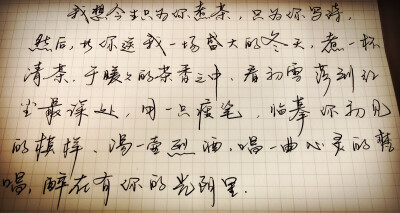 我想今生只为你煮茶，只为你写诗，
然后，与你送我一场盛大的冬天，煮一杯
清茶，于暖々的茶香之中，看初雪落到红
尘最深处，用一只瘦笔，临摹你初见
的模样，温一壶烈酒，唱一曲心灵的对
唱，醉在有你的光阴里.